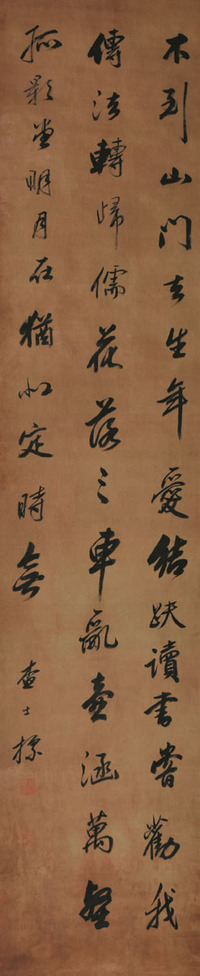 不到山門去生年愛結趺讀書嘗勸我
傳法轉歸儒花落三車亂涵萬壑
孤影堂明月在猶似定時無
查士標